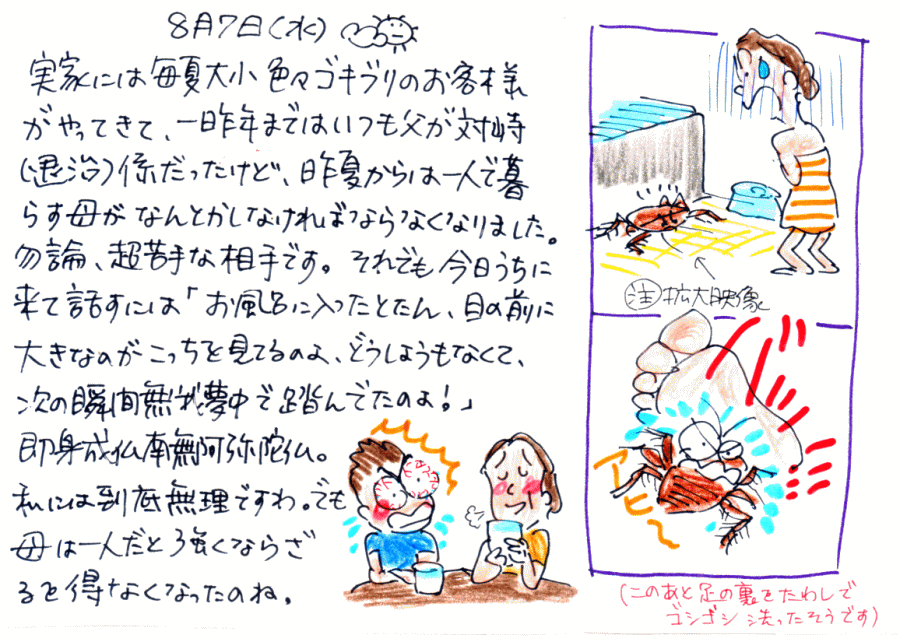 8月7日(水)
実家には毎夏大小色々ゴキブリのお客様
がやってきて、一昨年まではいつも父が対峙
(退治)係だったけど、昨夏からは一人で暮
らす母がなんとかしなければならなくなりました。
勿論、超苦手な相手です。それでも今日うちに
来て話すには「お風呂に入ったとたん、目の前に
大きなのがこっちを見てるのよ、どうしようもなくて、
次の瞬間無我夢中で踏んでたのよ!」
即身成仏南無阿弥陀仏。
私には到底無理ですわ。でも
母は一人だと強くならざ
るを得なくなったのね。
注 拡大映像
アヒ〜
(このあと足の裏をたわしで
ゴシゴシ洗ったそうです)